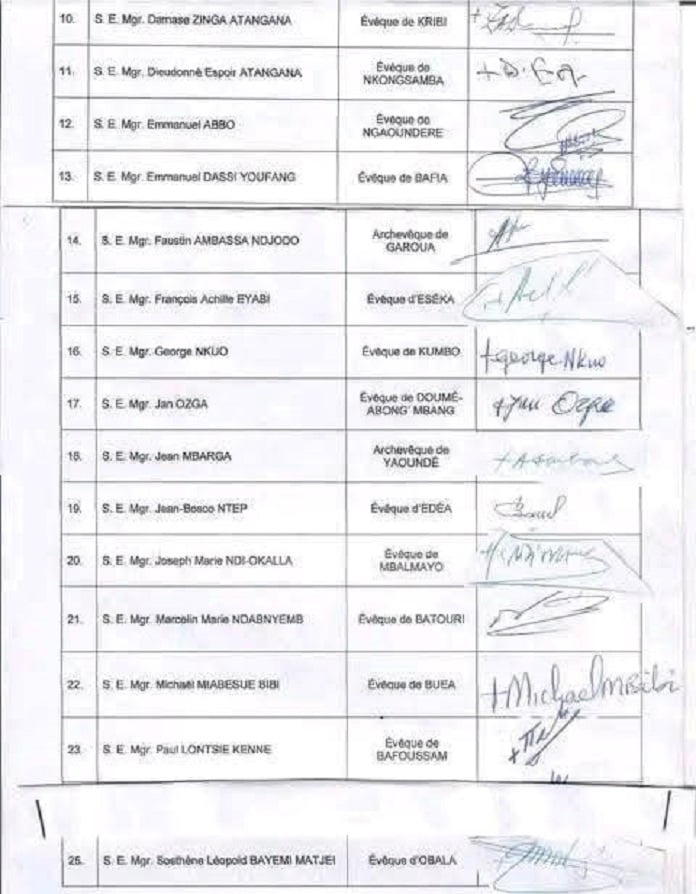 10. S. E. Mgr. Damase ZINGA ATANGANA Évêque de KRIBI
11. S. E. Mgr. Dieudonné Espoir ATANGANA Évêque de NKONGSAMBA + D. Esp
12. S. E. Mgr. Emmanuel ABBO Évêque de NGAOUNDERE
13. S. E. Mgr. Emmanuel DASSI YOUFANG Évêque de BAFIA
14. S. E. Mgr. Faustin AMBASSA NDJODO Archevêque de GAROUA
15. S. E. Mgr. François Achille EYABI Évêque d'ESÉKA
16. S. E. Mgr. George NKUO Évêque de KUMBO +George Nkuo
17. S. E. Mgr. Jan OZGA Évêque de DOUMÉ-ABONG' MBANG +Jan Ozga
18. S. E. Mgr. Jean MBARGA Archevêque de YAOUNDÉ
19. S. E. Mgr. Jean-Bosco NTEP Évêque d'EDÉA
20. S. E. Mgr. Joseph Marie NDI-OKALLA Évêque de MBALMAYO
21. S. E. Mgr. Marcelin Marie NDABNYEMB Évêque de BATOURI
22. S. E. Mgr. Michaël MIABESUE BIBI Évêque de BUEA +Michael M Bibi
23. S. E. Mgr. Paul LONTSIE KENNE Évêque de BAFOUSSAM
25. S. E. Mgr. Sosthène Léopold BAYEMI MATJEI Évêque d'OBALA